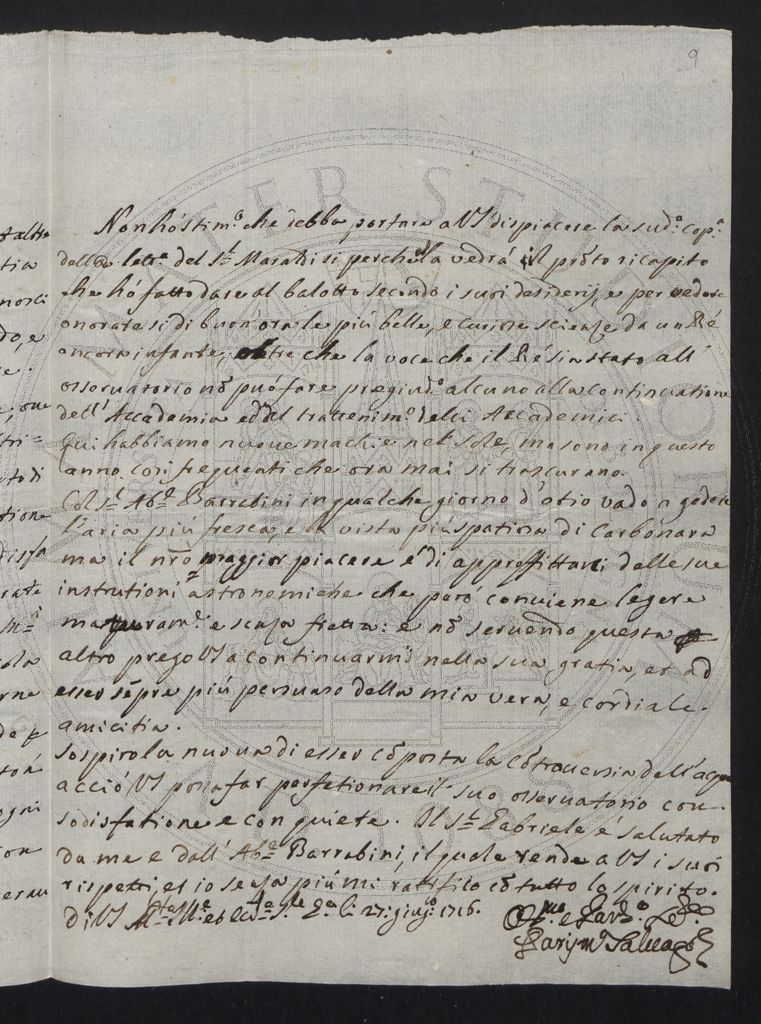 9
Non hó stim.º che debba portare a VS dispiacere la sud.ª cop.ª
della lett.ª del S.r Maraldi si perche la vedrá il prõto ricapito
che hó fatto dare al balotto secondo i suoi desiderij, e per vedere
onorare si di buon'ora le piú belle, e curiose scienze da un Ré
ancora infante, oltre che la voce che il Ré sia stato all'
osservatorio nõ puó fare pregiud.º alcuno alla continuatione
dell'Accademia ed del trattenim.º delli Accademici.
Qui habbiamo nuove machie nel Sole, ma sono in questo
anno cosi frequenti che ora mai si trascurano.
Col S.r Ab.e Barrabini in qualche giorno d'otio vado a godere
l'aria piú fresca, e la vista piú spatiosa di Carbonara
ma il nrõ maggior piacere é di approffittarci delle sue
instrutioni astronomiche che peró conviene legere
maturam.e e senza fretta: e nõ servendo questa
altro prego VS a continuarmi nella sua gratia, et ad
esser sẽpre piú persuaso della mia vera, e cordiale
amicitia.
Sospiro la nuova di esser cõposta la cõtroversia dell'acque
acció VS possa far perfetionare il suo osservatorio con
sodisfatione e con quiete. Il S.r Gabriele é salutato
da me e dall'Ab.e Barrabini, il quale rende a VS i suoi
rispetti, et io senza piú mi ratifico cõ tutto lo spirito.
di VS 27: giug.º 1716.